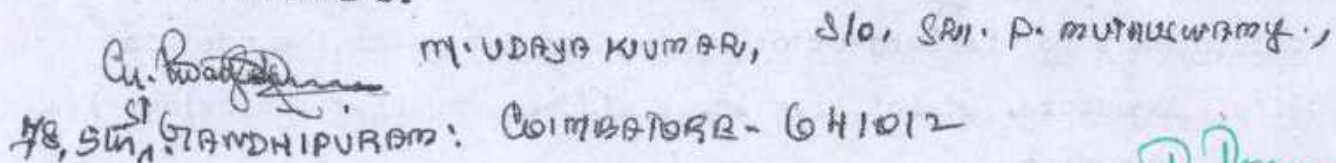 M. UDAYA KUMAR, S/O. SRI. P. MUTHUSWAMY.,
78, 5th St, GANDHIPURAM: COIMBATORE - 641012